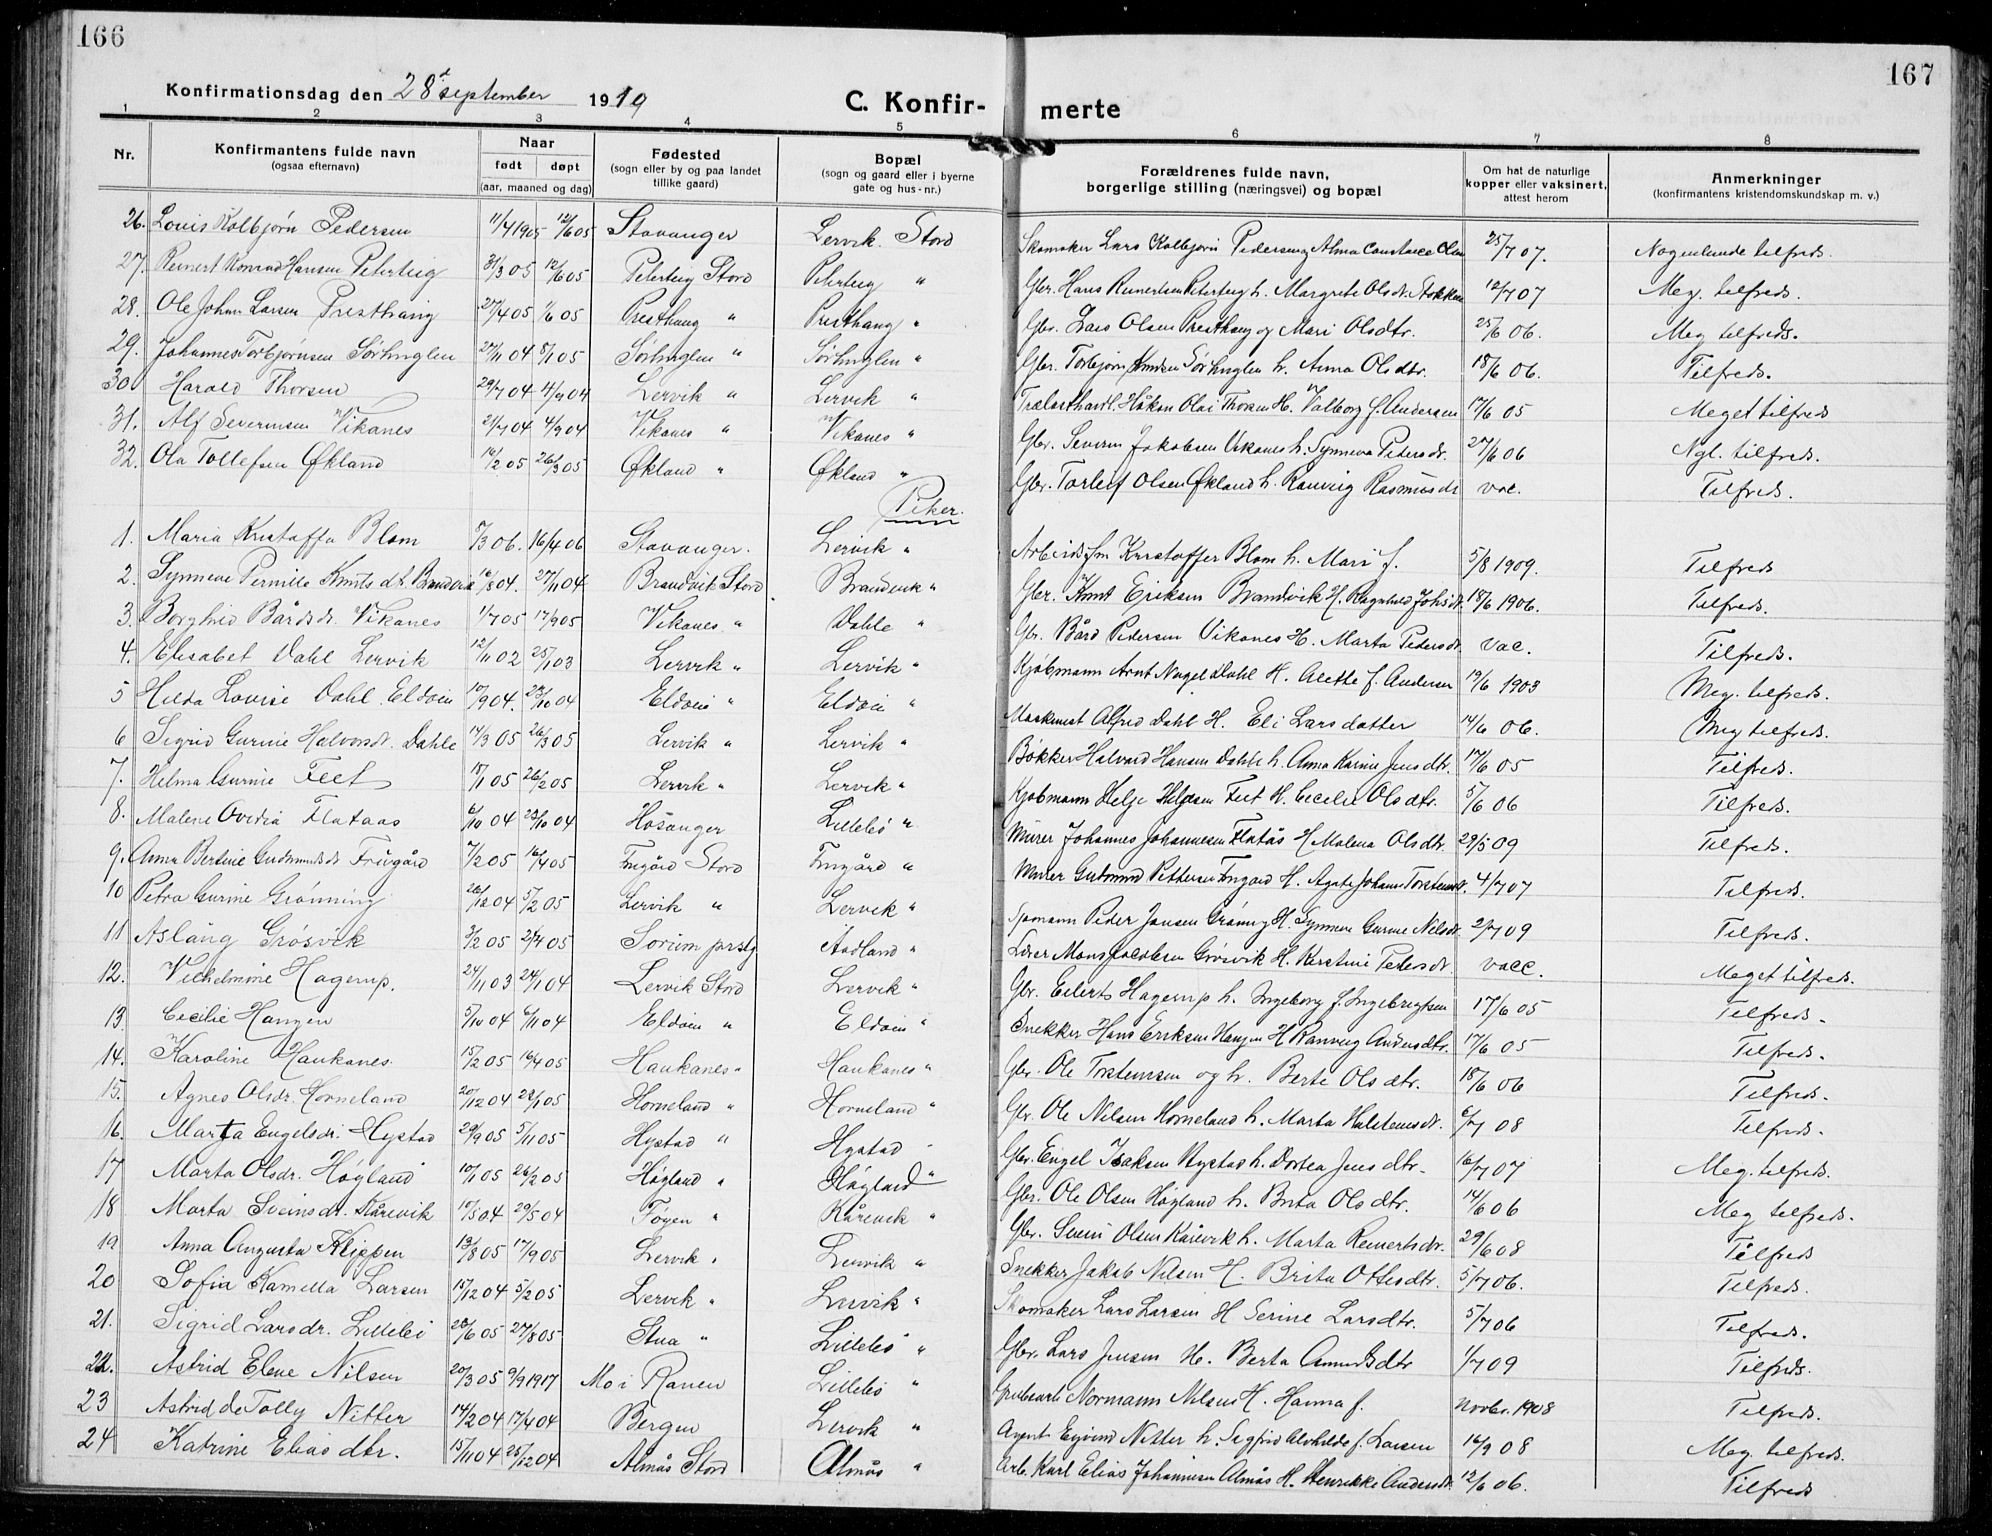 166
167
Konfirmationsdag den 28de september 1919
C. Konfir- merte
1 2 3 4 5 6 7 8
Nr. Konfirmantens fulde navn (ogsaa efternavn) Naar født døpt (aar, maaned og dag) Fødested (sogn eller by og paa landet tillike gaard) Bopæl (sogn og gaard eller i byerne gate og hus-nr.) Forældrenes fulde navn, borgerlige stilling (næringsvei) og bopæl Om hat de naturlige kopper eller vaksinert, attest herom Anmerkninger (konfirmantens kristendomskundskap m. v.)
26. Louis Kolbjørn Pedersen 11/4 1905 12/6 05 Stavanger Lervik Stord Skomaker Lars Kolbjørn Pedersen og Alma Constance Olsen 25/7 07. Nogenlunde tilfreds.
27. Reinert Konrad Hansen Peterteig 31/3 05 12/6 05 Peterteig Stord Peterteig " Gbr. Hans Reinertsen Peterteig h. Margrete Olsdt. Stokken 12/7 07 Meg. tilfreds.
28. Ole Johan Larsen Presthaug 27/4 05 1/6 05 Presthaug " Presthaug " Gbr. Lars Olsen Presthaug og Mari Olsdtr. 25/6 06. Meg tilfreds.
29. Johannes Torbjørnsen Sørhuglen 27/11 04 8/1 05 Sørhuglen " Sørhuglen " Gbr. Torbjørn Knudsen Sørhuglen h. Anna Olsdtr. 18/6 06. Tilfreds.
30 Harald Thorsen 29/7 04 11/9 04 Lervik " Lervik " Trælasthandl. Håkon Olai Thorsen H. Valborg f. Andersen 17/6 05 Meget tilfreds
31. Alf Severinsen Vikanes 21/7 04 4/9 04 Vikanes " Vikanes " Gbr. Severin Jakobsen Vikanes h. Synneva Petersdt. 27/6 06 Ngl. tilfreds.
32. Ola Tollefsen Økland 16/2 05 26/3 05 Økland " Økland " Gbr. Torleif Olsen Økland h. Ranveig Rasmusdt vac. Tilfreds.
Piker.
1. Maria Kristoffa Blom 8/3 06. 16/4 06 Stavanger. Lervik " Arbeidsfm Kristoffer Blom h. Mari f. 5/8 1909. Tilfreds
2. Synneve Pernille Knuts dt. Brandvik 16/8 04. 27/11 04 Brandvik Stord Brandvik " Gbr. Knut Eriksen Brandvik H. Ragnhild Johsdt. 18/6 1906. Tilfreds.
3. Borghild Bårdsdt. Vikanes 1/7 05 17/9 05 Vikanes " Dahle " Gbr. Bård Pedersen Vikanes H. Marta Petersdt. vac. Tilfreds.
4. Elisabet Dahl Lervik 12/11 02 25/1 03 Lervik " Lervik " Kjøbmann Arnt Nagel Dahl H. Alette f. Andersen 19/6 1903 Meg. tilfreds.
5 Hilda Lovise Dahl Eldøin 10/9 04. 23/10 04 Eldøin " Eldøin " Maskinist Alfred Dahl H. Eli Larsdatter 14/6 06. Meg tilfreds.
6 Sigrid Gurine Halvorsdt. Dahle 14/3 05 26/3 05 Lervik " Lervik " Bøkker Halvard Hansen Dahle h. Anna Karine Jensdtr. 17/6 05 Tilfreds.
7. Helma Gurine Feet 15/1 05 26/2 05 Lervik " Lervik " Kjøbmann Helje Heljesen Feet H. Cecelie Olsdtr. 5/6 06 Tilfreds.
8. Malene Ovidia Flataas 6/10 04 23/10 04 Hosanger Lillebø " Murer Johannes Johannesen Flatås H Malena Olsdtr. 29/5 09 Tilfreds.
9. Anna Bertine Gudmundsdt Frugård 7/2 05 16/4 05 Frugård Stord Frugård " Murer Gudmund Pettersen Frugård H. Agate Johane Torsteinsdt. 4/7 07 Tilfreds.
10 Petra Gurine Grønning 26/12 04 5/2 05 Lervik " Lervik " Sjømann Peder Jansen Grønning H. Synneve Gurine Nilsdt. 2/7 09 Tilfreds.
11 Aslaug Grøsvik 3/2 05 2/4 05 Sørum prstg Aadland " Lærer Mons Jacobsen Grøsvik H. Kirstine Petersdt. vacc. Meget tilfreds.
12. Vilhelmine Hagerup. 24/11 03 24/1 04 Lervik Stord Lervik " Gbr. Eilerts Hagerup h. Ingeborg f. Ingebregtsen 17/6 05 Tilfreds.
13 Cecilie Haugen 5/10 04 6/11 04 Eldøin " Eldøin " Snekker Hans Eriksen Haugen H Ranveig Andersdtr. 17/6 05 Tilfreds.
14. Karoline Haukanes. 15/2 05 16/4 05 Haukanes " Haukanes " Gbr. Ole Torsteinsen og h. Berte Olsdtr. 18/6 06 Tilfreds.
15. Agnes Olsdr. Horneland 20/12 04 22/1 05 Horneland " Horneland " Gbr. Ole Nilsen Horneland h. Marta Halsteinsdt. 6/7 08 Tilfreds.
16. Marta Engelsdr. Hystad 29/9 05 5/11 05 Hystad " Hystad " Gbr. Engel Isaksen Hystad h. Dortea Jensdtr. 16/7 07 Meg. tilfreds.
17 Marta Olsdr. Høgland 10/1 05 26/2 05 Høgland " Høgland " Gbr. Ole Olsen Høgland h. Brita Olsdtr. 14/6 06 Meg tilfreds.
18 Marta Sveinsdr. Kårevik 10/5 04 29/5 04 Føyen " Kårevik " Gbr. Svein Olsen Kårevik h. Marta Reinertsdr. 29/6 08 Tilfreds
19 Anna Augusta Klippen 13/8 05 17/9 05 Lervik " Lervik " Snekker Jakob Nilsen H. Brita Ottesdtr. 5/7 06. Tilfreds.
20 Sofia Kamilla Larsen 15/12 04 5/2 05 Lervik " Lervik " Skomaker Lars Larsen H Serine Larsdtr. 5/7 06 Tilfreds.
21. Sigrid Larsdr. Lillebø 20/6 05 27/8 05 Stua " Lillebø " Gbr. Lars Jensen H. Berta Amundsdtr 1/7 09 Tilfreds.
22. Astrid Elene Nilsen 20/3 05 9/9 1917 Mo i Ranen Lillebø " Normann Nilsen H. Hanna f. Novbr. 1908 Tilfreds.
23 Astrid de Tolly Nitter 14/2 04 17/4 04 Bergen Lervik " Agent Eyvind Nitter h. Sigfrid Alvhilde f. Larsen 16/9 08 Meg tilfreds.
24 Katrine Elias dtr. 15/11 04 25/12 04 Almås Stord Almås " Arb. Karl Elias Johannesen Almås H. Henrikke Andersdt. 12/6 06. Tilfreds